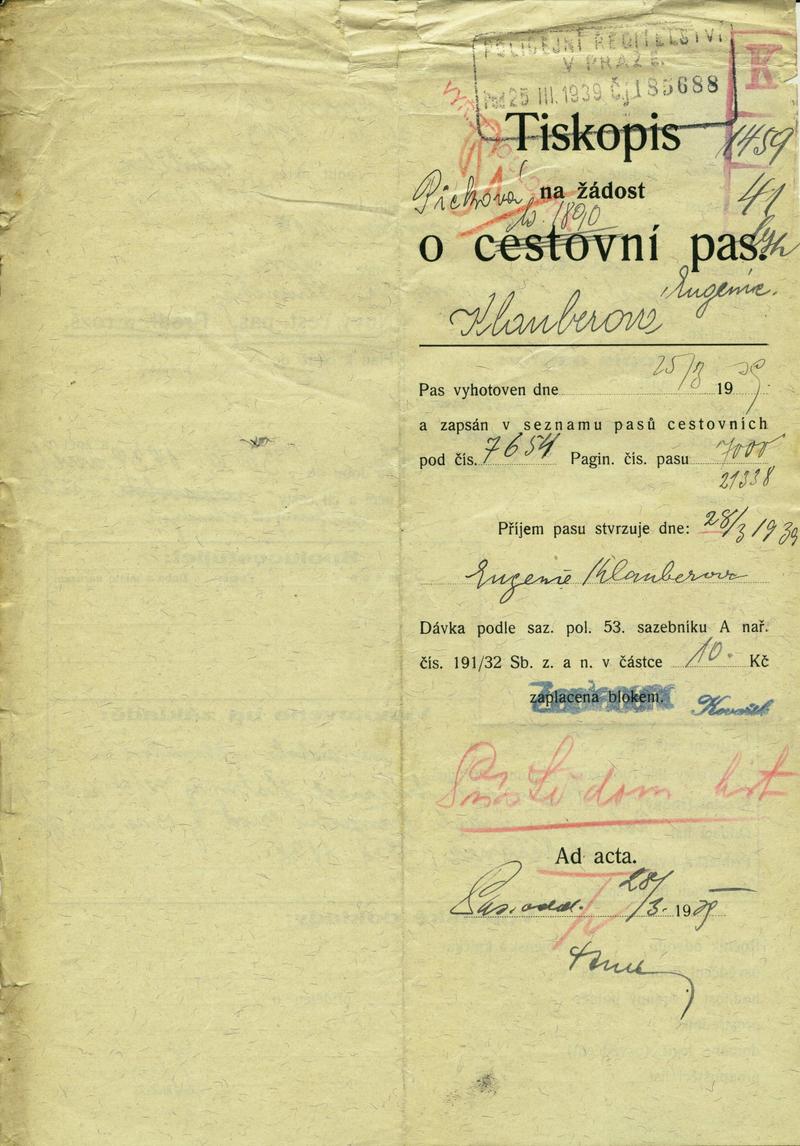 POLICEJNÍ ŘEDITELSTVÍ
V PRAZE.
25 III. 1939 Čj 185688
K
Tiskopis
1459
41
na žádost
1890
o cestovní pas.
Eugenie.
Klauberová
Pas vyhotoven dne 25/3 19 39
a zapsán v seznamu pasů cestovních
pod čís. 7654 Pagin. čís. pasu 7000
21338
Příjem pasu stvrzuje dne: 28/3 1939
Eugenie Klauberova
Dávka podle saz. pol. 53. sazebníku A nař.
čís. 191/32 Sb. z. a n. v částce 10.- Kč
zaplacena blokem.
dom. list
Ad acta.
28/3. 1939